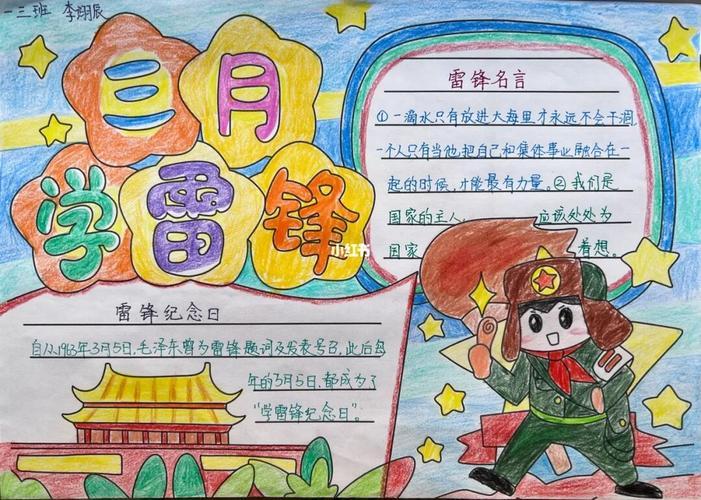 一三班 李翊辰
三月
学雷锋
小红书
雷锋名言
①一滴水只有放进大海里才永远不会干涸,
一个人只有当他把自己和集体事业融合在一
起的时候,才能最有力量。②我们是
国家的主人, 应该处处为
国家 着想。
雷锋纪念日
自从1963年3月5日,毛泽东曾为雷锋题词及发表号召,此后每
年的3月5日,都成为了
“学雷锋纪念日”。